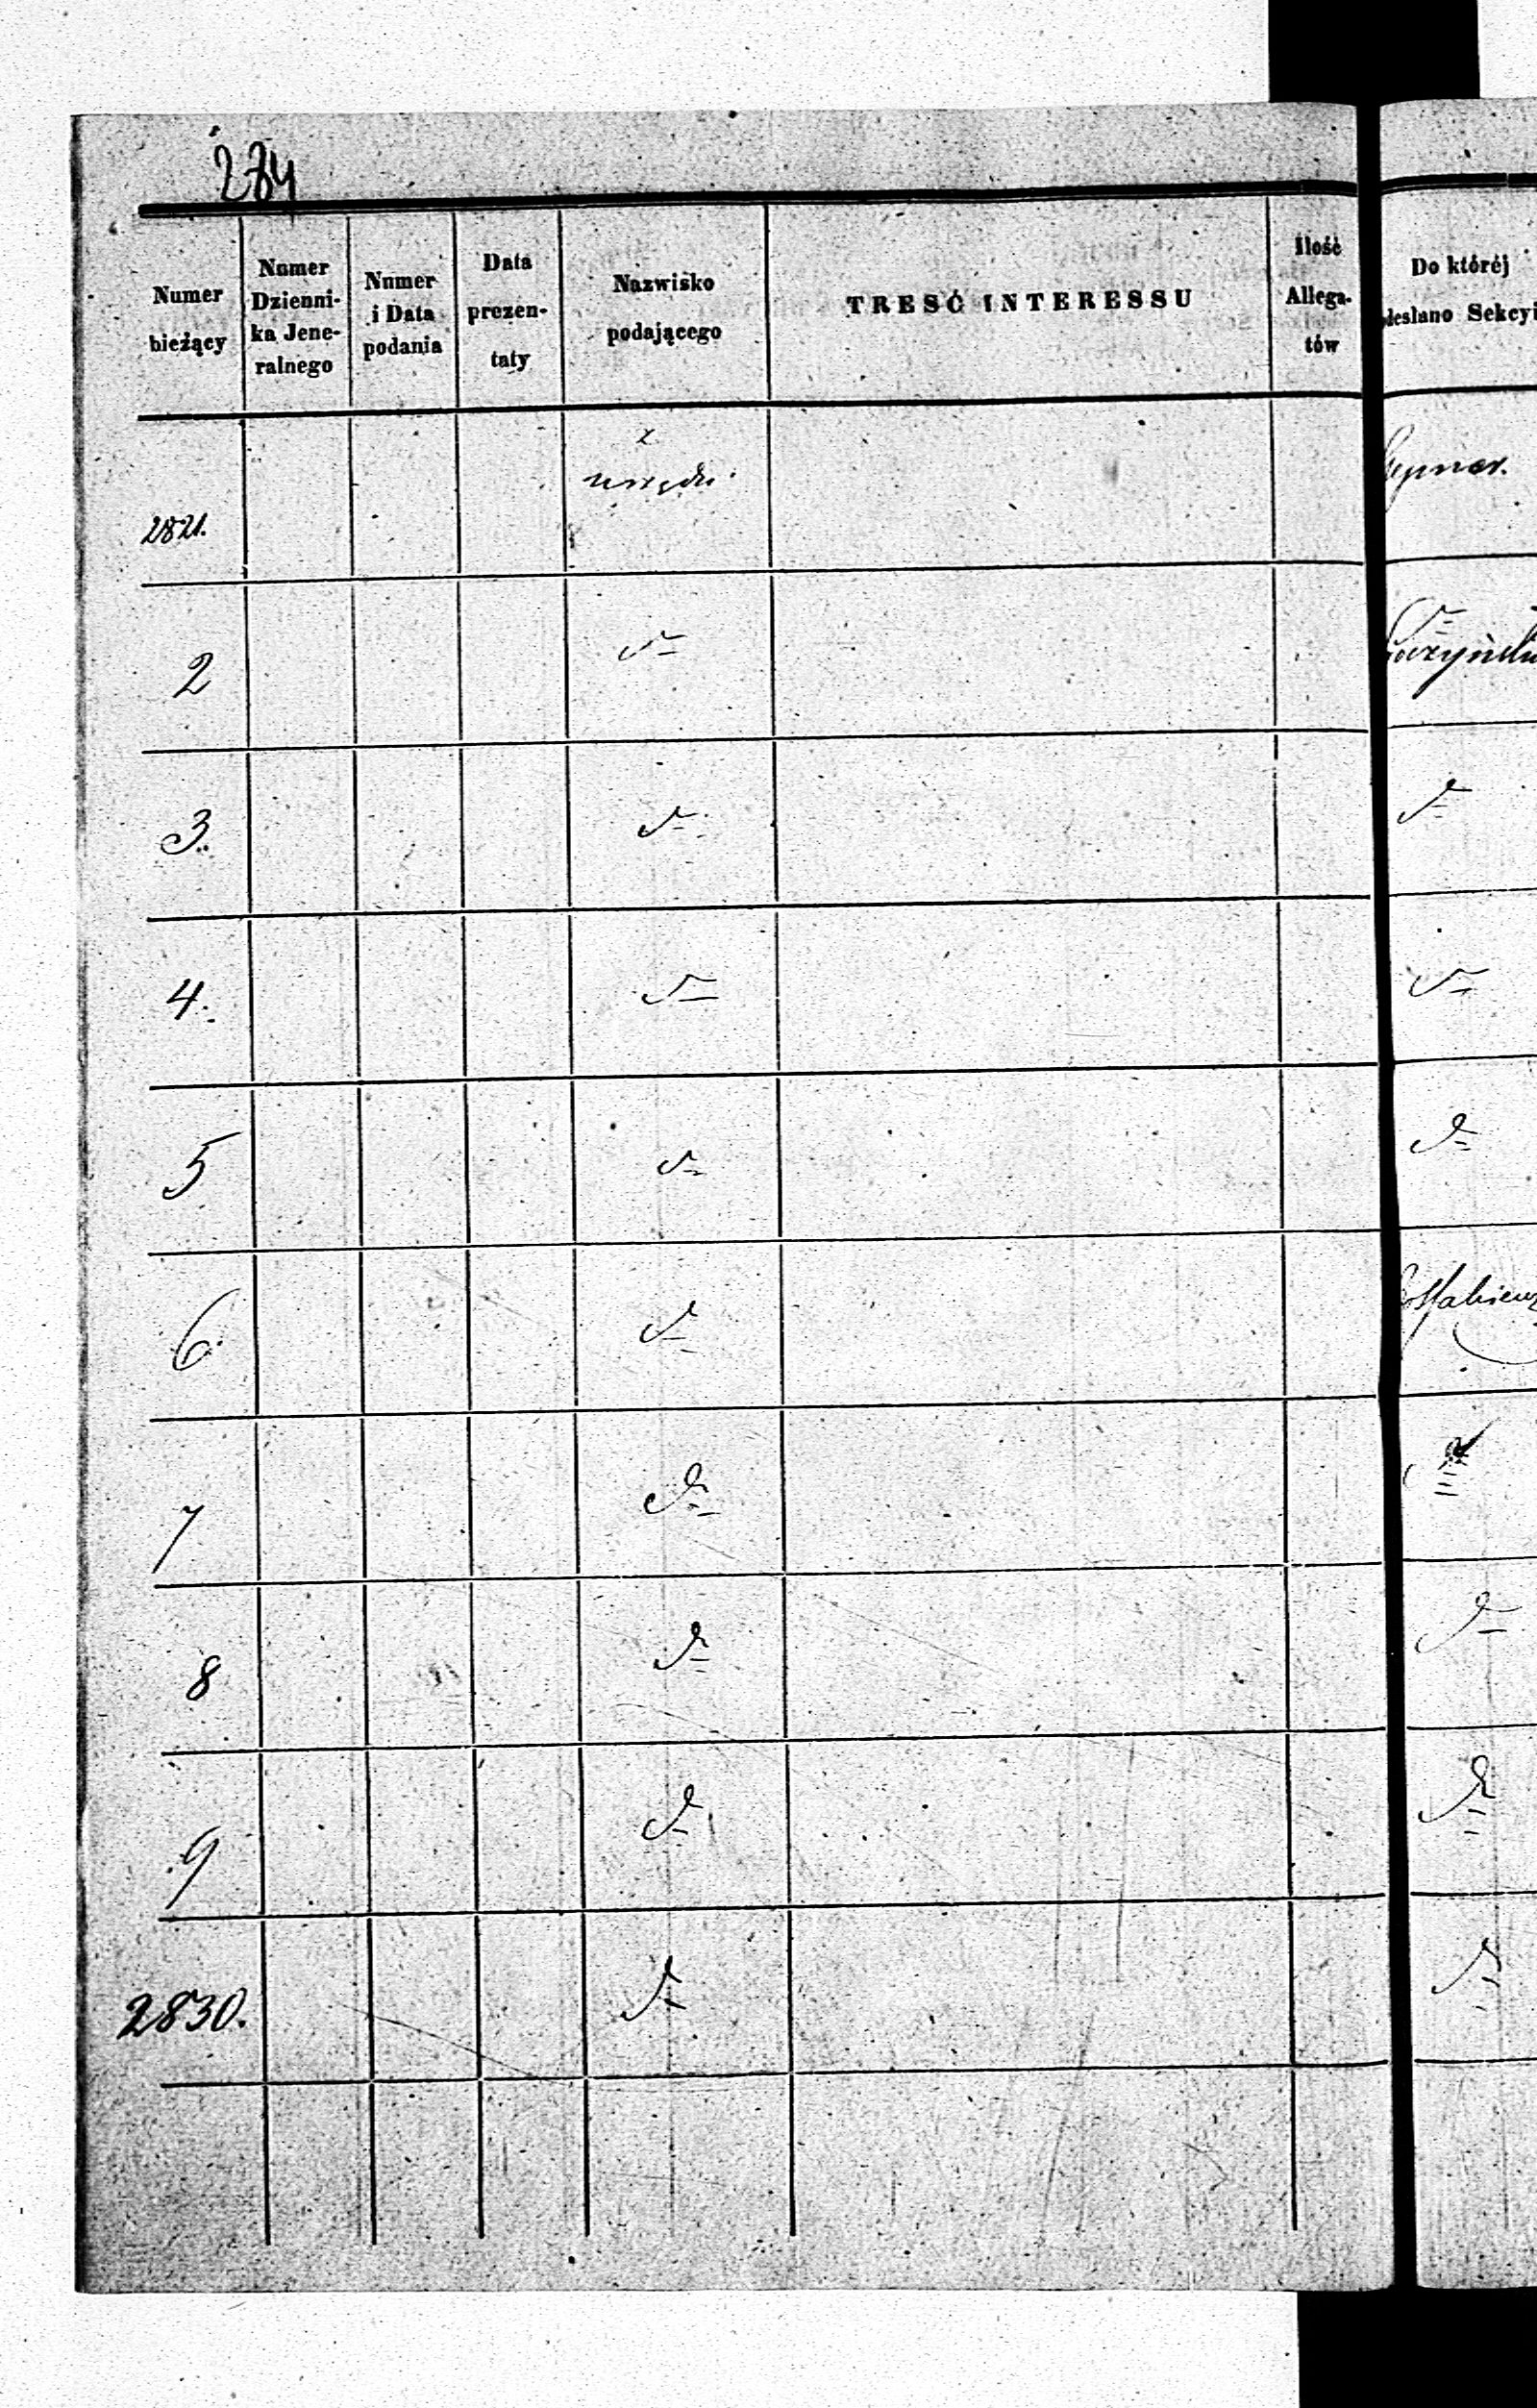 284
Numer
bieżący
Numer
Dzienni-
ka Jene-
ralnego
Numer
i Data
podania
Data
prezen-
taty
Nazwisko
podającego
TRESĆ INTERESSU
Ilość
Allega-
tów
Do któréj
desłano Sekcyi
2821.
z
urzędu
2
do
3.
do
do
4.
do
do
5
do
do
6
do
7
do
8
do
do
9
do
do
2830.
do
do